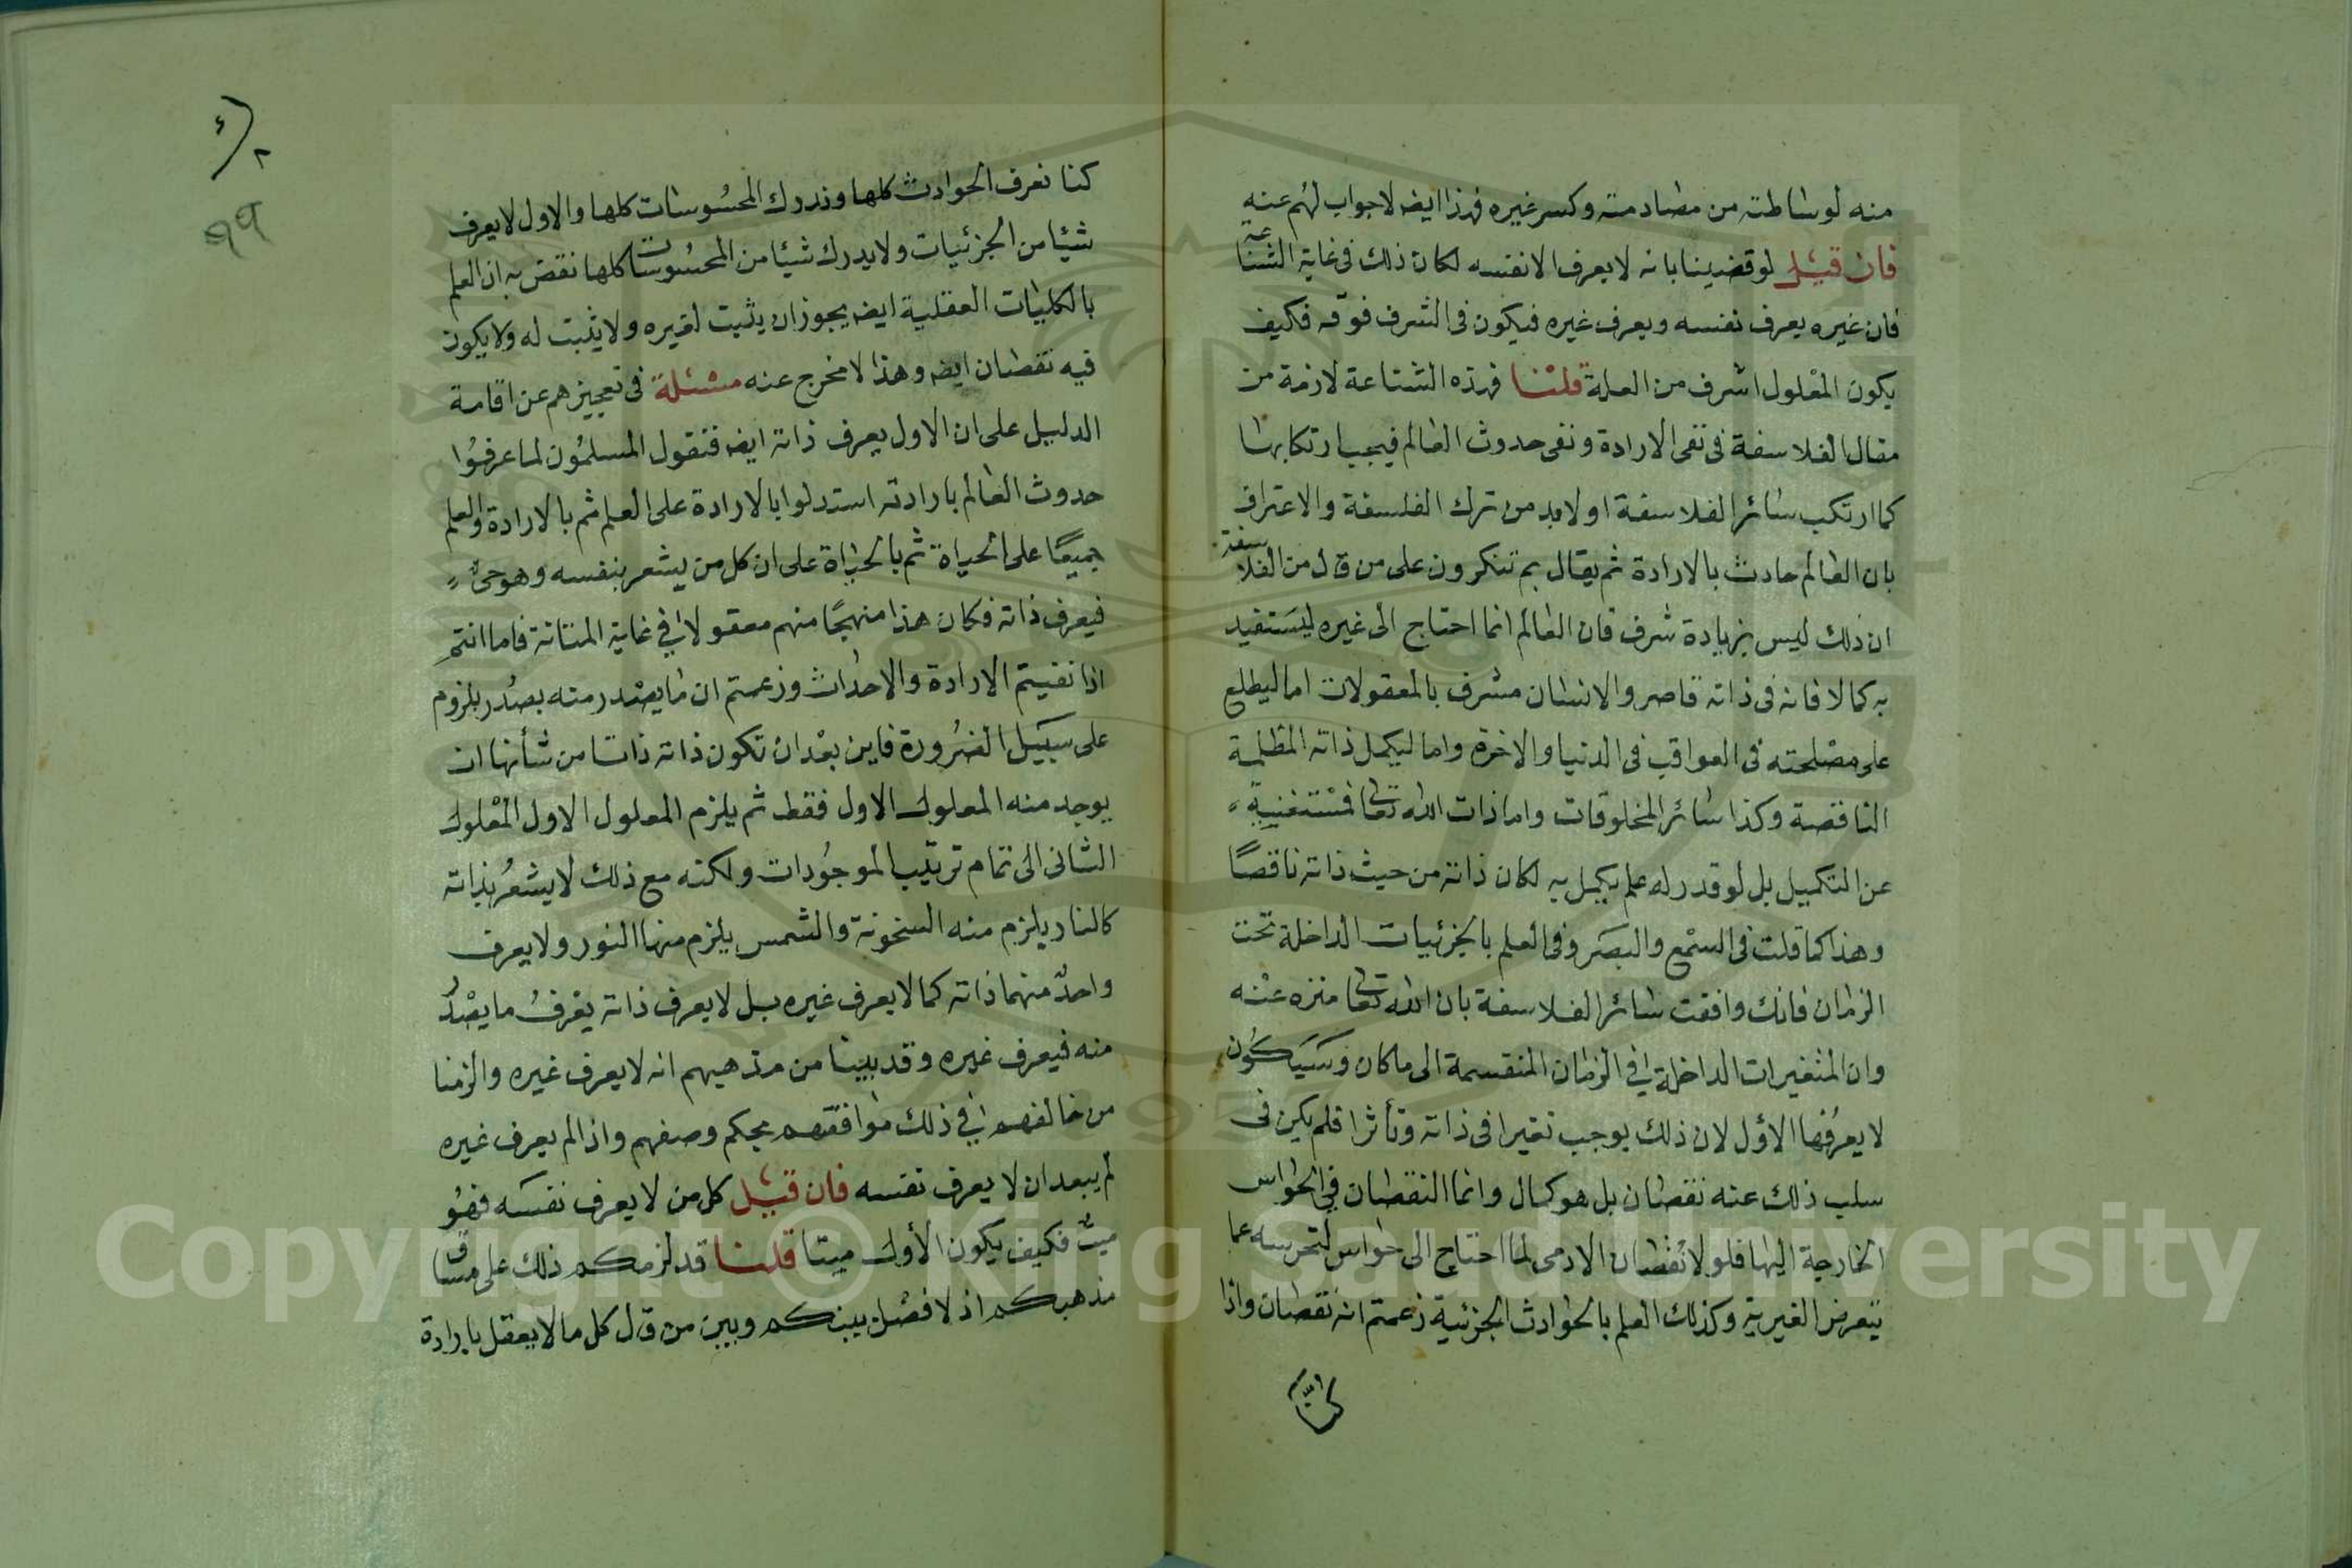 منه لوساطته من مصادمته وكسر غيره فهذا ايضا لا جواب لهم عنه
فان قيل لو قضينا بانه لا يعرف الا نفسه لكان ذلك في غاية الشناعة
فان غيره يعرف نفسه ويعرف غيره فيكون في الشرف فوقه فكيف
يكون المعلول اشرف من العلة قلنا فهذه الشناعة لازمة من
مقال الفلاسفة في نفي الارادة ونفي حدوث العالم فيجب ارتكابها
كما ارتكب سائر الفلاسفة او لا بد من ترك الفلسفة والاعتراف
بان العالم حادث بالارادة ثم يقال بم تنكرون على من قال من الفلاسفة
ان ذلك ليس بزيادة شرف فان العالم انما احتاج الى غيره ليستفيد
به كمالا فانه في ذاته قاصر والانسان مشرف بالمعقولات اما ليطلع
على مصلحته في العواقب في الدنيا والاخرة واما ليكمل ذاته المظلمة
الناقصة وكذا سائر المخلوقات واما ذات الله تعالى فمستغنية
عن التكميل بل لو قدر له علم يكمل به لكان ذاته من حيث ذاته ناقصًا
وهذا كما قلت في السمع والبصر وفي العلم بالجزئيات الداخلة تحت
الزمان فانك وافقت سائر الفلاسفة بان الله تعالى منزه عنه
وان المتغيرات الداخلة في الزمان المنقسمة الى ما كان وسيكون
لا يعرفها الاول لان ذلك يوجب تغيرا في ذاته وتأثرا فلم يكن في
سلب ذلك عنه نقصان بل هو كمال وانما النقصان في الحواس
الخارجة اليها فلولا نقصان الادمي لما احتاج الى حواس لتحرسه عما
يتعرض الغيرية وكذلك العلم بالحوادث الجزئية زعمتم انه نقصان واذا
كنا
كنا نعرف الحوادث كلها وندرك المحسوسات كلها والاول لا يعرف
شيئا من الجزئيات ولا يدرك شيئا من المحسوسات كلها نقض به ان العلم
بالكليات العقلية ايضا يجوز ان يثبت لغيره ولا يثبت له ولا يكون
فيه نقصان ايضا وهذا لا مخرج عنه مسئلة في تعجيزهم عن اقامة
الدليل على ان الاول يعرف ذاته ايضا فنقول المسلمون لما عرفوا
حدوث العالم بارادته استدلوا بالارادة على العلم ثم بالارادة والعلم
جميعًا على الحياة ثم بالحياة على ان كل من يشعر بنفسه وهو حي
فيعرف ذاته فكان هذا منهجًا منهم معقولا في غاية المتانة فاما انتم
اذا نفيتم الارادة والاحداث وزعمتم ان ما يصدر منه بصدر بلزوم
على سبيل الضرورة فاين بعد ان تكون ذاته ذاتا من شأنها ان
يوجد منه المعلول الاول فقط ثم يلزم المعلول الاول المعلول
الثاني الى تمام ترتيب الموجودات ولكنه مع ذلك لا يشعر بذاته
كالنار يلزم منه السخونة والشمس يلزم منها النور ولا يعرف
واحدٌ منهما ذاته كما لا يعرف غيره بل لا يعرف ذاته يعرف ما يصدر
منه فيعرف غيره وقد بينا من مذهبهم انه لا يعرف غيره والزمنا
من خالفهم في ذلك موافقتهم بحكم وصفهم واذا لم يعرف غيره
لم يبعد ان لا يعرف نفسه فان قيل كل من لا يعرف نفسه فهو
ميت فكيف يكون الأول ميتا قلنا قد لزمكم ذلك على مساق
مذهبكم اذ لا فصل بينكم وبين من قال كل ما لا يعقل بارادة
٩٩
Copyright © King Saud University